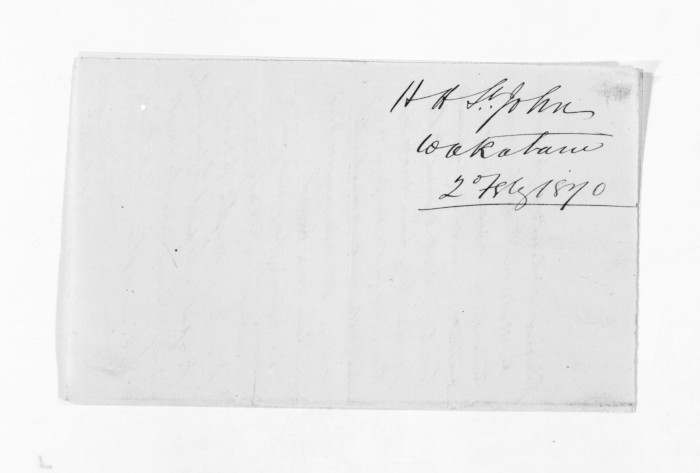 H H St. John
Wakatane
2d Feby 1870